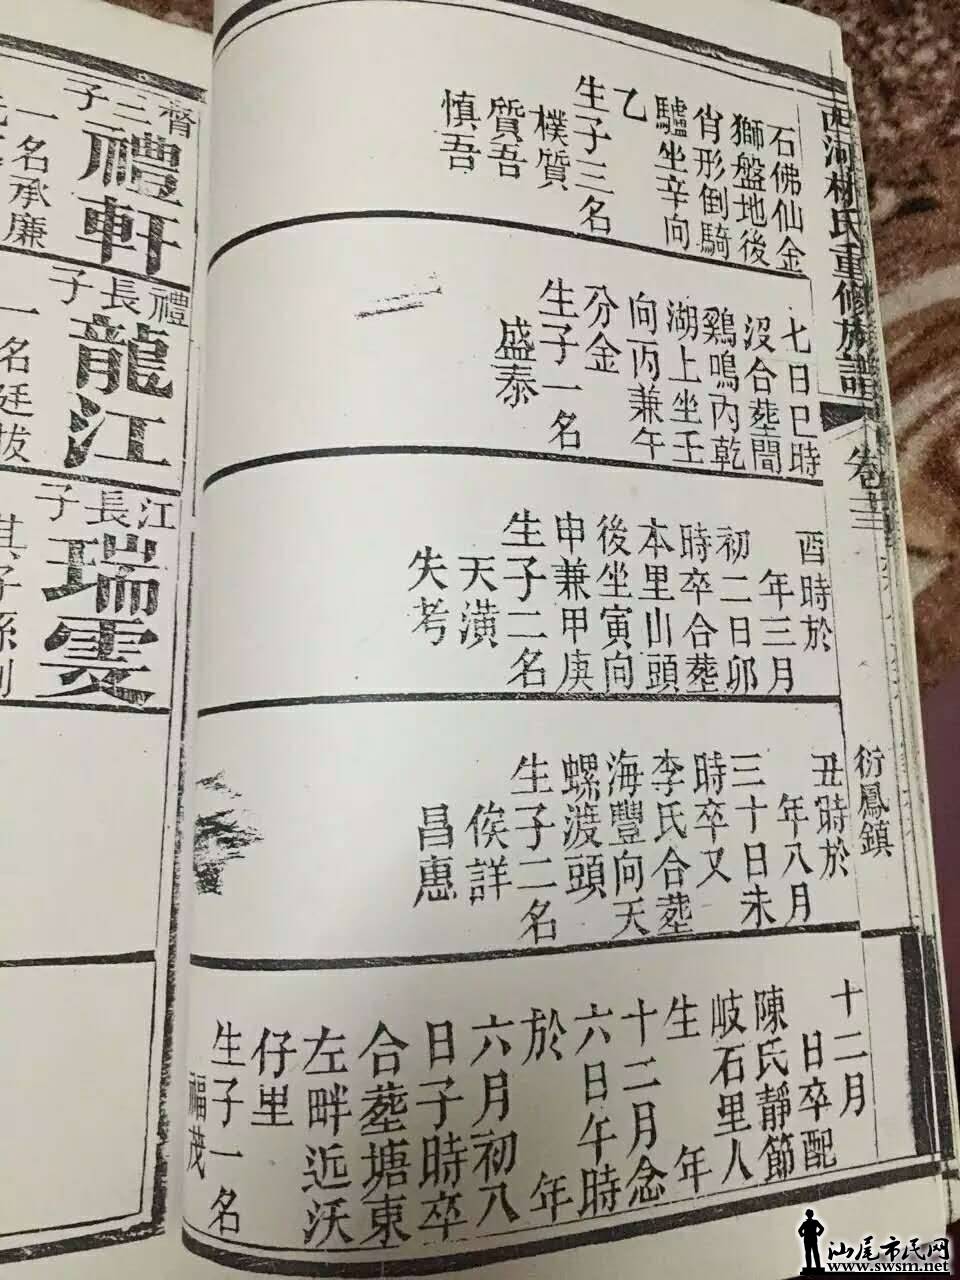 西河林氏重修族譜
卷十三
衍鳳鎮
石佛仙金
獅盤地後
肖形倒騎
驢坐辛向
乙
生子三名
樸質
質吾
慎吾
七日巳時
沒合葬間
鷄鳴內乾
湖上坐壬
向丙兼午
分金
生子一名
盛泰
酉時於
年三月
初二日卯
時卒合葬
本里山頭
後坐寅向
申兼甲庚
生子二名
天潢
失考
丑時於
年八月
三十日未
時卒又
李氏合葬
海豐向天
螺渡頭
生子二名
俟詳
昌惠
十二月
日卒配
陳氏靜節
岐石里人
生 年
十二月念
六日午時
於 年
六月初八
日子時卒
合葬塘東
左畔近沃
仔里
生子一名
福茂
督三子
禮軒
一名承廉
禮長子
龍江
一名廷拔
江長子
瑞雲
汕尾市民网
www.swsm.net